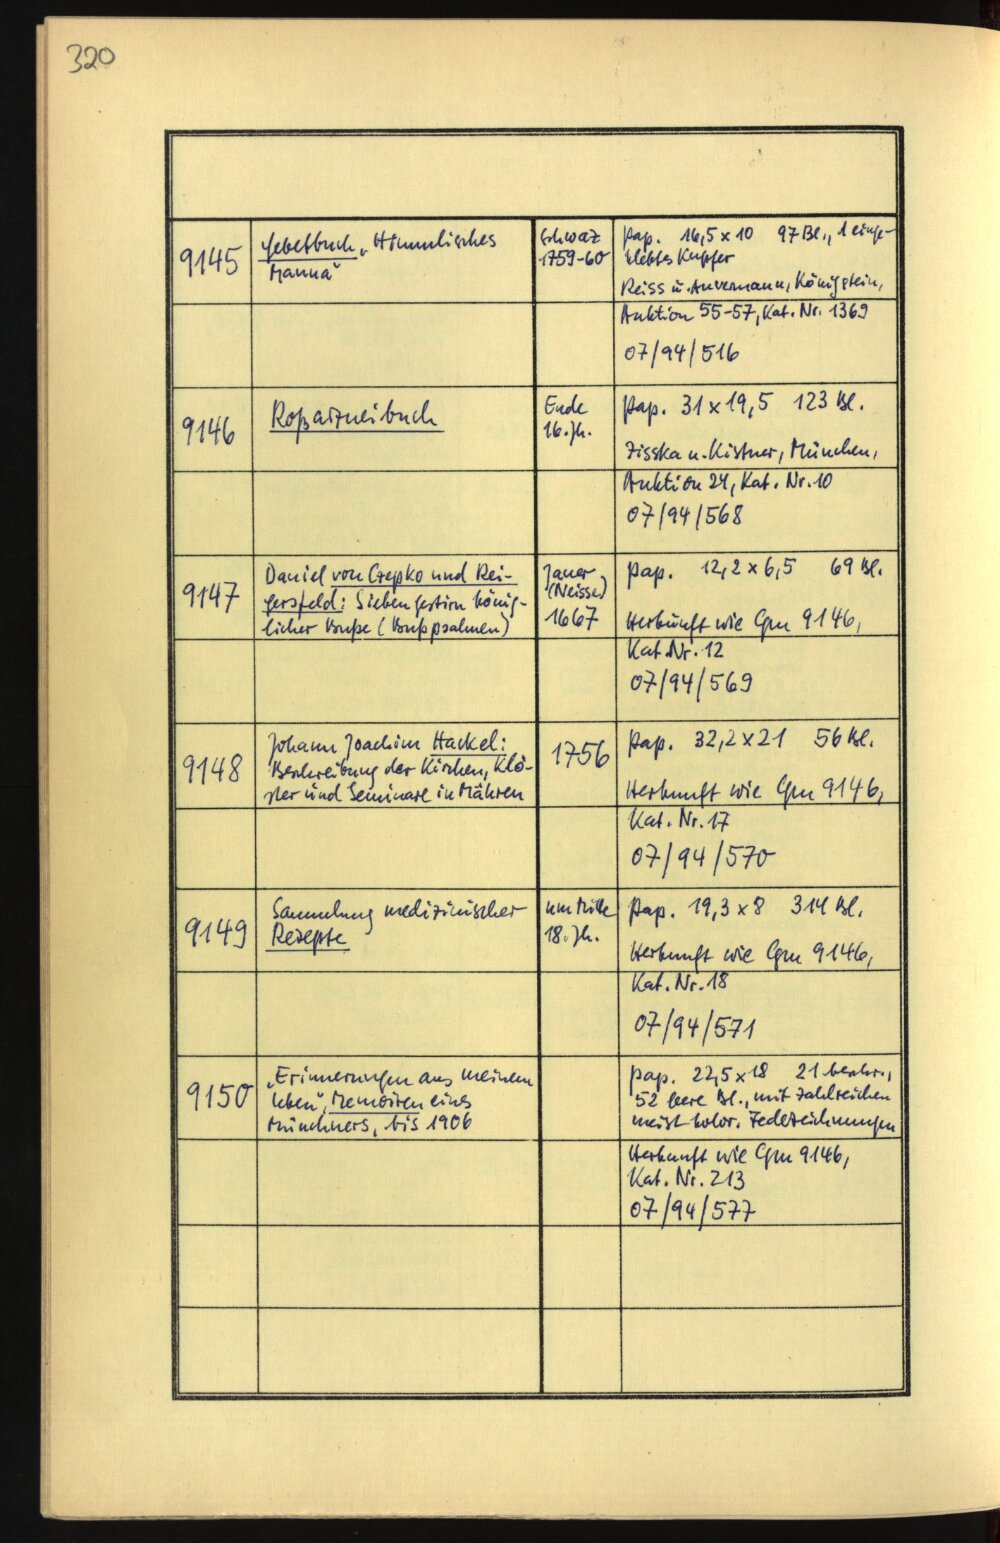 320
9145
Gebetbuch „Himmlisches
Manna“
Schwaz
1759-60
Pap. 16,5 x 10 97 Bl., 1 einge-
klebtes Kupfer
Reiss u. Auvermann, Königstein,
Auktion 55-57, Kat. Nr. 1369
07/94/516
9146
Roßarzneibuch
Ende
16. Jh.
Pap. 31 x 19,5 123 Bl.
Zisska u. Kistner, München,
Auktion 24, Kat. Nr. 10
07/94/568
9147
Daniel von Czepko und Rei-
gersfeld: Siebengestirn könig-
licher Buße (Bußpsalmen)
Jauer
(Neisse)
1667
Pap. 12,2 x 6,5 69 Bl.
Herkunft wie Cgm 9146,
Kat. Nr. 12
07/94/569
9148
Johann Joachim Hackel:
Beschreibung der Kirchen, Klö-
ster und Seminare in Mähren
1756
Pap. 32,2 x 21 56 Bl.
Herkunft wie Cgm 9146,
Kat. Nr. 17
07/94/570
9149
Sammlung medizinischer
Rezepte
um Mitte
18. Jh.
Pap. 19,3 x 8 314 Bl.
Herkunft wie Cgm 9146,
Kat. Nr. 18
07/94/571
9150
„Erinnerungen aus meinem
Leben“, Memoiren eines
Münchners, bis 1906
Pap. 22,5 x 18 21 beschr.,
52 leere Bl., mit zahlreichen
meist kolor. Federzeichnungen
Herkunft wie Cgm 9146,
Kat. Nr. 213
07/94/577